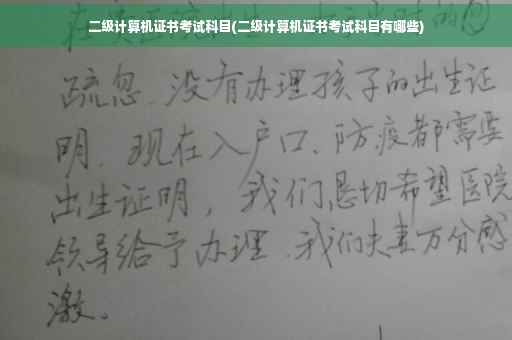 二级计算机证书考试科目(二级计算机证书考试科目有哪些)
疏忽、没有办理孩子的出生证
明、现在入户口、防疫都需要
出生证明，我们恳切希望医院
领导给予办理、我们夫妻万分感
激。